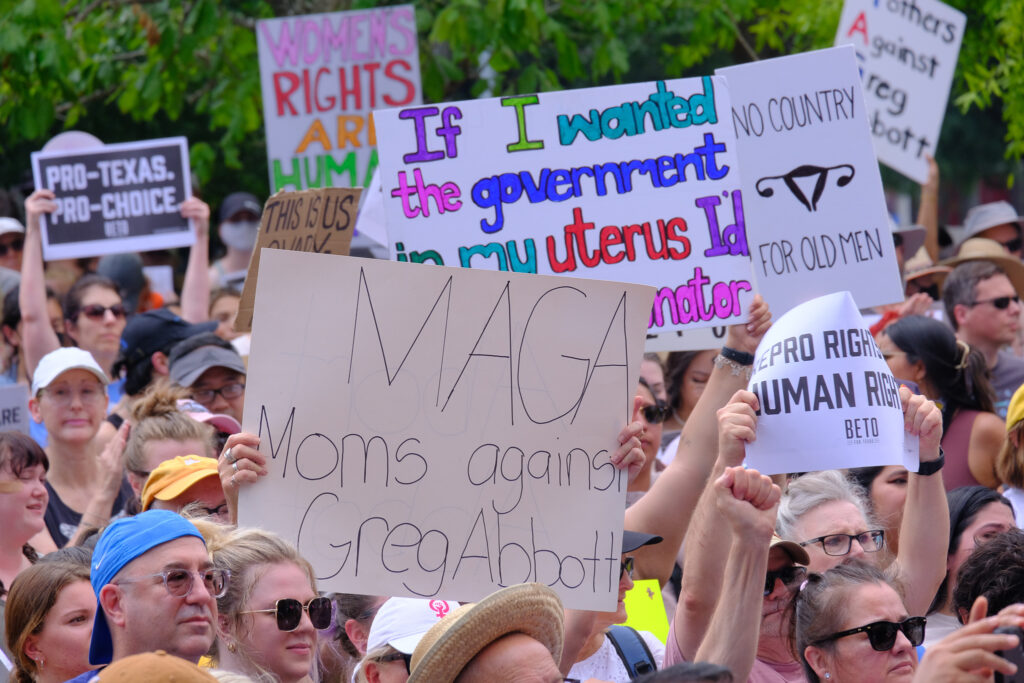 WOMENS
RIGHTS
ARE
HUMAN
PRO-TEXAS.
PRO-CHOICE.
BETO
THIS IS US
If I wanted
the government
in my uterus I'd
NO COUNTRY
FOR OLD MEN
others
Against
Greg
bbott
MAGA
Moms against
Greg Abbott
REPRO RIGHTS
HUMAN RIGH
BETO
FOR TEXAS
ARE